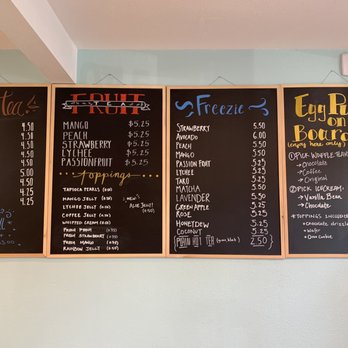 Tea
4.50
4.50
4.50
4.50
5.00
4.50
4.50
4.25
4.25
FRUIT
TEA
MANGO $5.25
PEACH $5.25
STRAWBERRY $5.25
LYCHEE $5.25
PASSIONFRUIT $5.25
Toppings
TAPIOCA PEARLS
MANGO JELLY
LYCHEE JELLY
COFFEE JELLY
WHIPPED CREAM
FRESH PEACH
FRESH STRAWBERRY
FRESH MANGO
RAINBOW JELLY
NEW!
ALOE JELLY
Freezie
STRAWBERRY 5.50
AVOCADO 6.00
PEACH 5.50
MANGO 5.50
PASSION FRUIT 5.25
LYCHEE 5.25
TARO 5.25
MATCHA 5.50
LAVENDER 5.50
GREEN APPLE 5.25
ROSE 5.25
HONEYDEW 5.25
COCONUT 5.25
HOT TEA 2.50
Egg
on
(enjoy here only)
① PICK WAFFLE
→ Chocolate
→ Coffee
→ Original
② PICK ICECREAM:
→ Vanilla Bean
→ Chocolate
+ TOPPINGS
• Chocolate
• Wafer